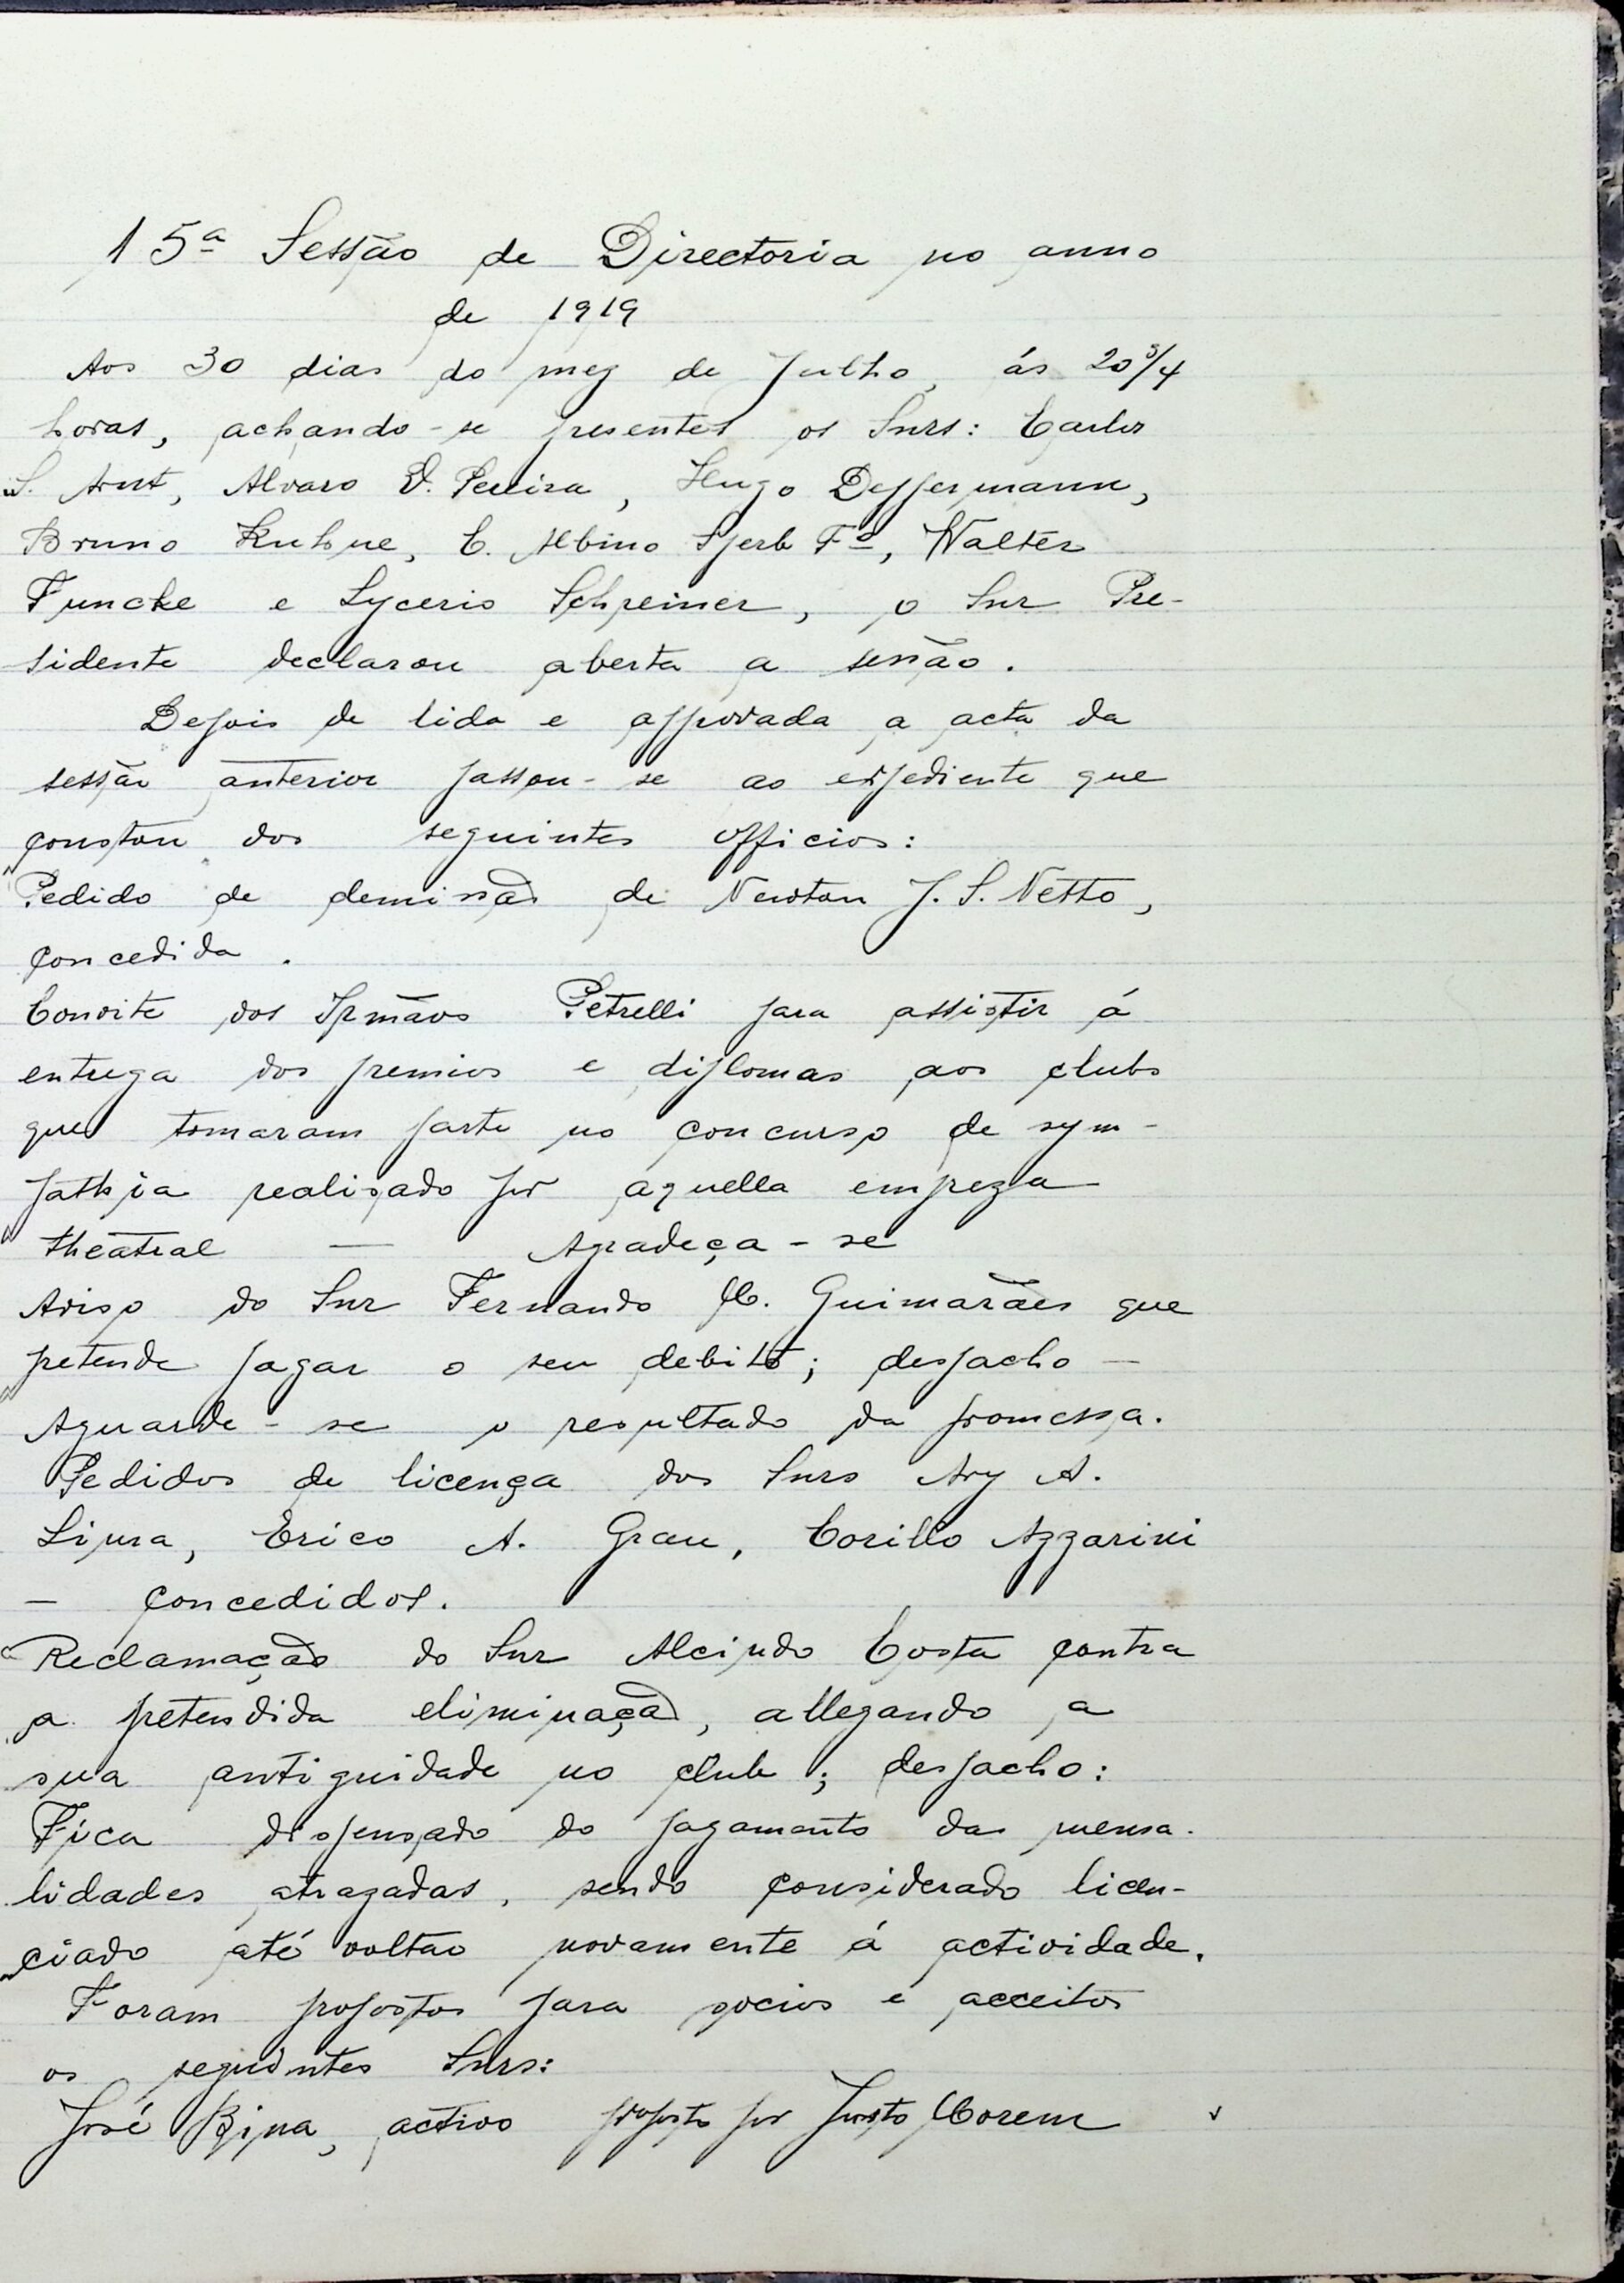 15ª Sessão de Directoria no anno
de 1919
Aos 30 dias do mez de Julho, ás 20 3/4
horas, achando-se presentes os Snrs: Carlos
S. Arnt, Alvaro D. Pereira, Hugo Deppermann,
Bruno Kuhne, C. Albino Sperb Fº, Walter
Funcke e Lycerio Schreiner, o Snr Pre-
sidente declarou aberta a sessão.
Depois de lida e approvada a acta da
sessão anterior passou-se ao expediente que
constou dos seguintes officios:
Pedido de demissão de Newton J. S. Netto,
concedida.
Convite dos Irmãos Petrelli para assistir á
entrega dos premios e diplomas aos clubs
que tomaram parte no concurso de sym-
pathia realisado por aquella empreza
theatral — Agradeça-se
Aviso do Snr Fernando M. Guimarães que
pretende pagar o seu debito; despacho —
Aguarde-se o resultado da promessa.
Pedidos de licença dos Snrs Ary A.
Lima, Erico A. Grau, Corillo Azzarini
— concedidos.
Reclamação do Snr Alcindo Costa contra
a pretendida eliminação, allegando a
sua antiguidade no club; despacho:
Fica dispensado do pagamento das mensa-
lidades atrazadas, sendo considerado licen-
ciado até voltar novamente á actividade.
Foram propostos para socios e acceitos
os seguintes Snrs:
José Bina, activo proposto por Justo Morem